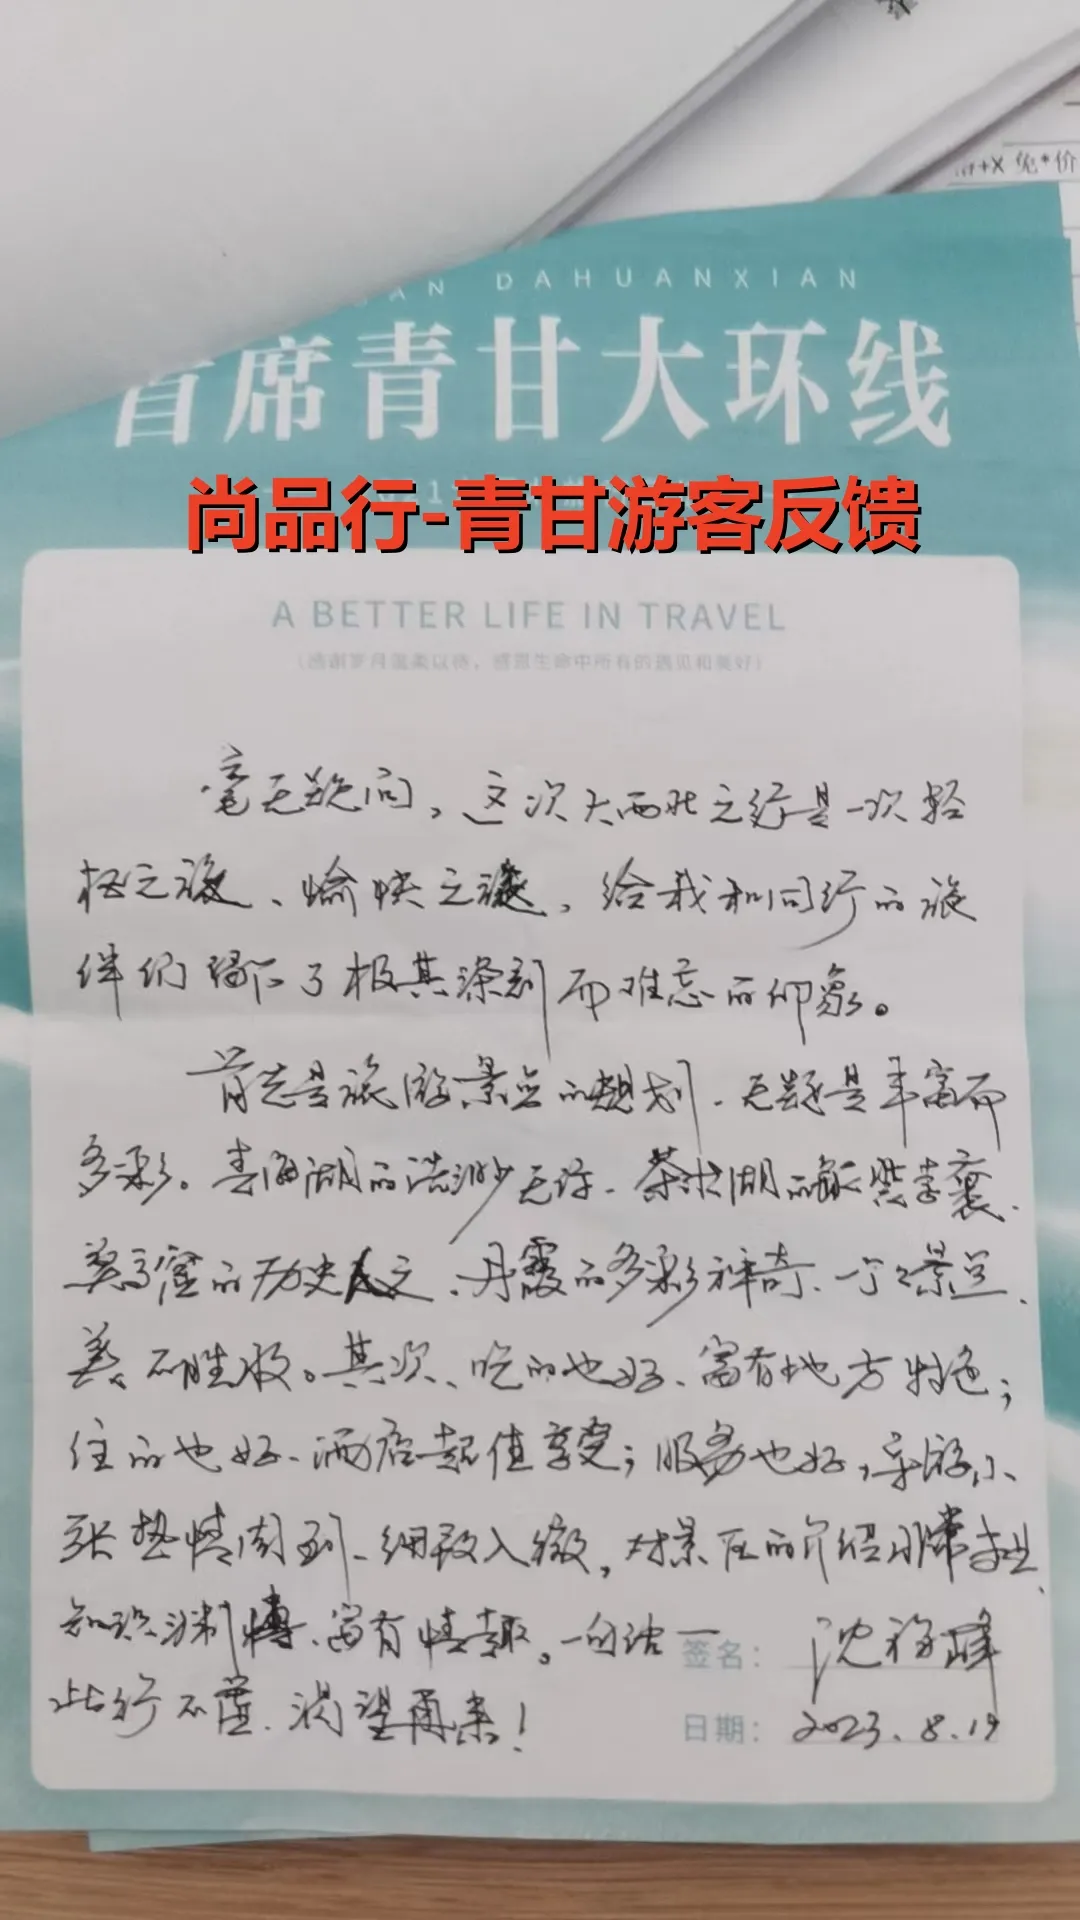 +X 免*价
AN DAHUANXIAN
首席青甘大环线
尚品行-青甘游客反馈
A BETTER LIFE IN TRAVEL
(感谢岁月温柔以待，感恩生命中所有的遇见和美好)
毫无疑问，这次大西北之行是一次轻
松之旅、愉快之旅，给我和同行的旅
伴们留下了极其深刻而难忘的印象。
首先是旅游景点的规划，无疑是丰富而
多彩。青海湖的浩渺无垠、茶卡湖的
莫高窟的历史人文、丹霞的多彩神奇、一个个景点、
美不胜收。其次、吃的也好、富有地方特色；
住的也好、酒店超值享受；服务也好，导游小
张热情周到、细致入微，对景区的介绍非常专业、
知识渊博、富有情趣。一句话一
此行不虚、渴望再来！
签名：沈
日期：2023.8.19